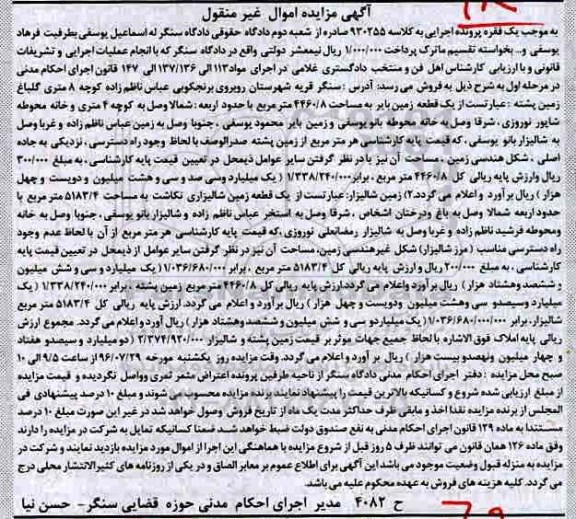 آگهی مزایده اموال غیر منقول
به موجب یک فقره پرونده اجرایی به کلاسه ۹۳۰۲۵۵ صادره از شعبه دوم دادگاه حقوقی دادگاه سنگر له اسماعیل یوسفی بطرفیت فرهاد
یوسفی و... بخواسته تقسیم ماترک پرداخت ۱/۰۰۰/۰۰۰ ریال نیمعشر دولتی واقع در دادگاه سنگر که با انجام عملیات اجرایی و تشریفات
قانونی و با ارزیابی کارشناس اهل فن و منتخب دادگستری غلامی در اجرای مواد ۱۱۳ الی ۱۳۷/۱۳۶ الی ۱۴۷ قانون اجرای احکام مدنی
در مرحله اول به شرح ذیل به فروش می رسد: آدرس : سنگر قریه شهرستان روبروی برنجکوبی عباس ناظم زاده کوچه ۸ متری گلباغ
زمین پشته : عبارتست از یک قطعه زمین بایر به مساحت ۴۴۶۰/۸ متر مربع با حدود اربعه : شمالا وصل به کوچه ۴ متری و خانه محوطه
شاپور نوروزی ، شرقا وصل به خانه محوطه بانو یوسفی و زمین بایر محمود یوسفی ، جنوبا وصل به زمین عباس ناظم زاده و غربا وصل
به شالیزار بانو یوسفی ، که قیمت پایه کارشناسی هر متر مربع از زمین پشته صدرالوصف با لحاظ وجود راه دسترسی ، نزدیکی به جاده
اصلی ، شکل هندسی زمین ، مساحت آن نیز با در نظر گرفتن سایر عوامل ذیمدخل در تعیین قیمت پایه کارشناسی ، به مبلغ ۳۰۰/۰۰۰
ریال وارزش پایه ریالی کل ۴۴۶۰/۸ متر مربع ، برابر ۱/۳۳۸/۲۴۰/۰۰۰ ( یک میلیارد وسی صد و سی و هشت میلیون و دویست و چهل
هزار ) ریال برآورد و اعلام می گردد.۲) زمین شالیزار: عبارتست از یک قطعه زمین شالیزاری نکاشت به مساحت ۵۱۸۳/۴ متر مربع با
حدود اربعه شمالا وصل به باغ ودرختان اشخاص ، شرقا وصل به استخر عباس ناظم زاده و شالیزار بانو یوسفی ، جنوبا وصل به خانه
ومحوطه فرشید ناظم زاده و غربا وصل به شالیزار رمضانعلی نوروزی ،که قیمت پایه کارشناسی هر متر مربع از آن با لحاظ عدم وجود
راه دسترسی مناسب ( مرز شالیزار) شکل غیرهندسی زمین، مساحت آن نیز در نظر گرفتن سایر عوامل از ذیمدخل در تعیین قیمت پایه
کارشناسی ، به مبلغ ۲۰۰/۰۰۰ ریال و ارزش پایه ریالی کل ۵۱۸۳/۴ متر مربع ، برابر ۱/۰۳۶/۶۸۰/۰۰۰ ( یک میلیارد و سی و شش میلیون
و ششصد وهشتاد هزار ) ریال برآورد واعلام می گردد.ارزش پایه ریالی کل ۴۴۶۰/۸ متر مربع زمین پشته ، برابر ۱/۳۳۸/۲۴۰/۰۰۰ ( یک
میلیارد وسیصدو سی وهشت میلیون ودویست و چهل هزار ) ریال برآورد و اعلام می گردد. ارزش پایه ریالی کل ۵۱۸۳/۴ متر مربع
شالیزار، برابر ۱/۰۳۶/۶۸۰/۰۰۰( یک میلیاردو سی و شش میلیون و ششصدوهشتاد هزار) ریال برآورد واعلام می گردد. مجموع ارزش
ریالی پایه املاک فوق الاشاره با لحاظ جمیع جهات موثر بر قیمت زمین پشته و شالیزار ۲/۳۷۴/۹۲۰/۰۰۰ ( دو میلیارد و سیصدو هفتاد
و چهار میلیون ونهصدو بیست هزار ) ریال بر آورد و اعلام می گردد. وقت مزایده روز یکشنبه مورخه ۹۶/۰۷/۲۹ از ساعت ۹/۵ الی ۱۰
صبح محل مزایده : دفتر اجرای احکام مدنی دادگاه سنگر از ناحیه طرفین پرونده اعتراض مثمر ثمری وواصل نگردیده و قیمت مزایده
از مبلغ ارزیابی شده شروع و کسانیکه بالاترین قیمت را پیشنهاد نمایند برنده مزایده محسوب می شوند و مبلغ ۱۰ درصد پیشنهادی فی
المجلس از برنده مزایده نقدا اخذ و مابقی ظرف حداکثر مدت یک ماه از تاریخ فروش وصول خواهد شد در غیر این صورت مبلغ ۱۰ درصد
مستندا به ماده ۱۲۹ قانون اجرای احکام مدنی به نفع صندوق دولت ضبط خواهد شد ضمنا کسانیکه تمایل به شرکت در مزایده را دارند
وفق ماده ۱۲۶ همان قانون می توانند ظرف ۵ روز قبل از شروع مزایده با هماهنگی این اجرا از اموال مورد مزایده بازدید نمایند و شرکت در
مزایده به منزله قبول وضعیت موجود می باشد این آگهی برای اطلاع عموم بر معابر الصاق و در یکی از روزنامه های کثیرالانتشار محلی درج
می گردد. کلیه هزینه های فروش به عهده محکوم علیه می باشد.
ح ۴۰۸۲ مدیر اجرای احکام مدنی حوزه قضایی سنگر- حسن نیا